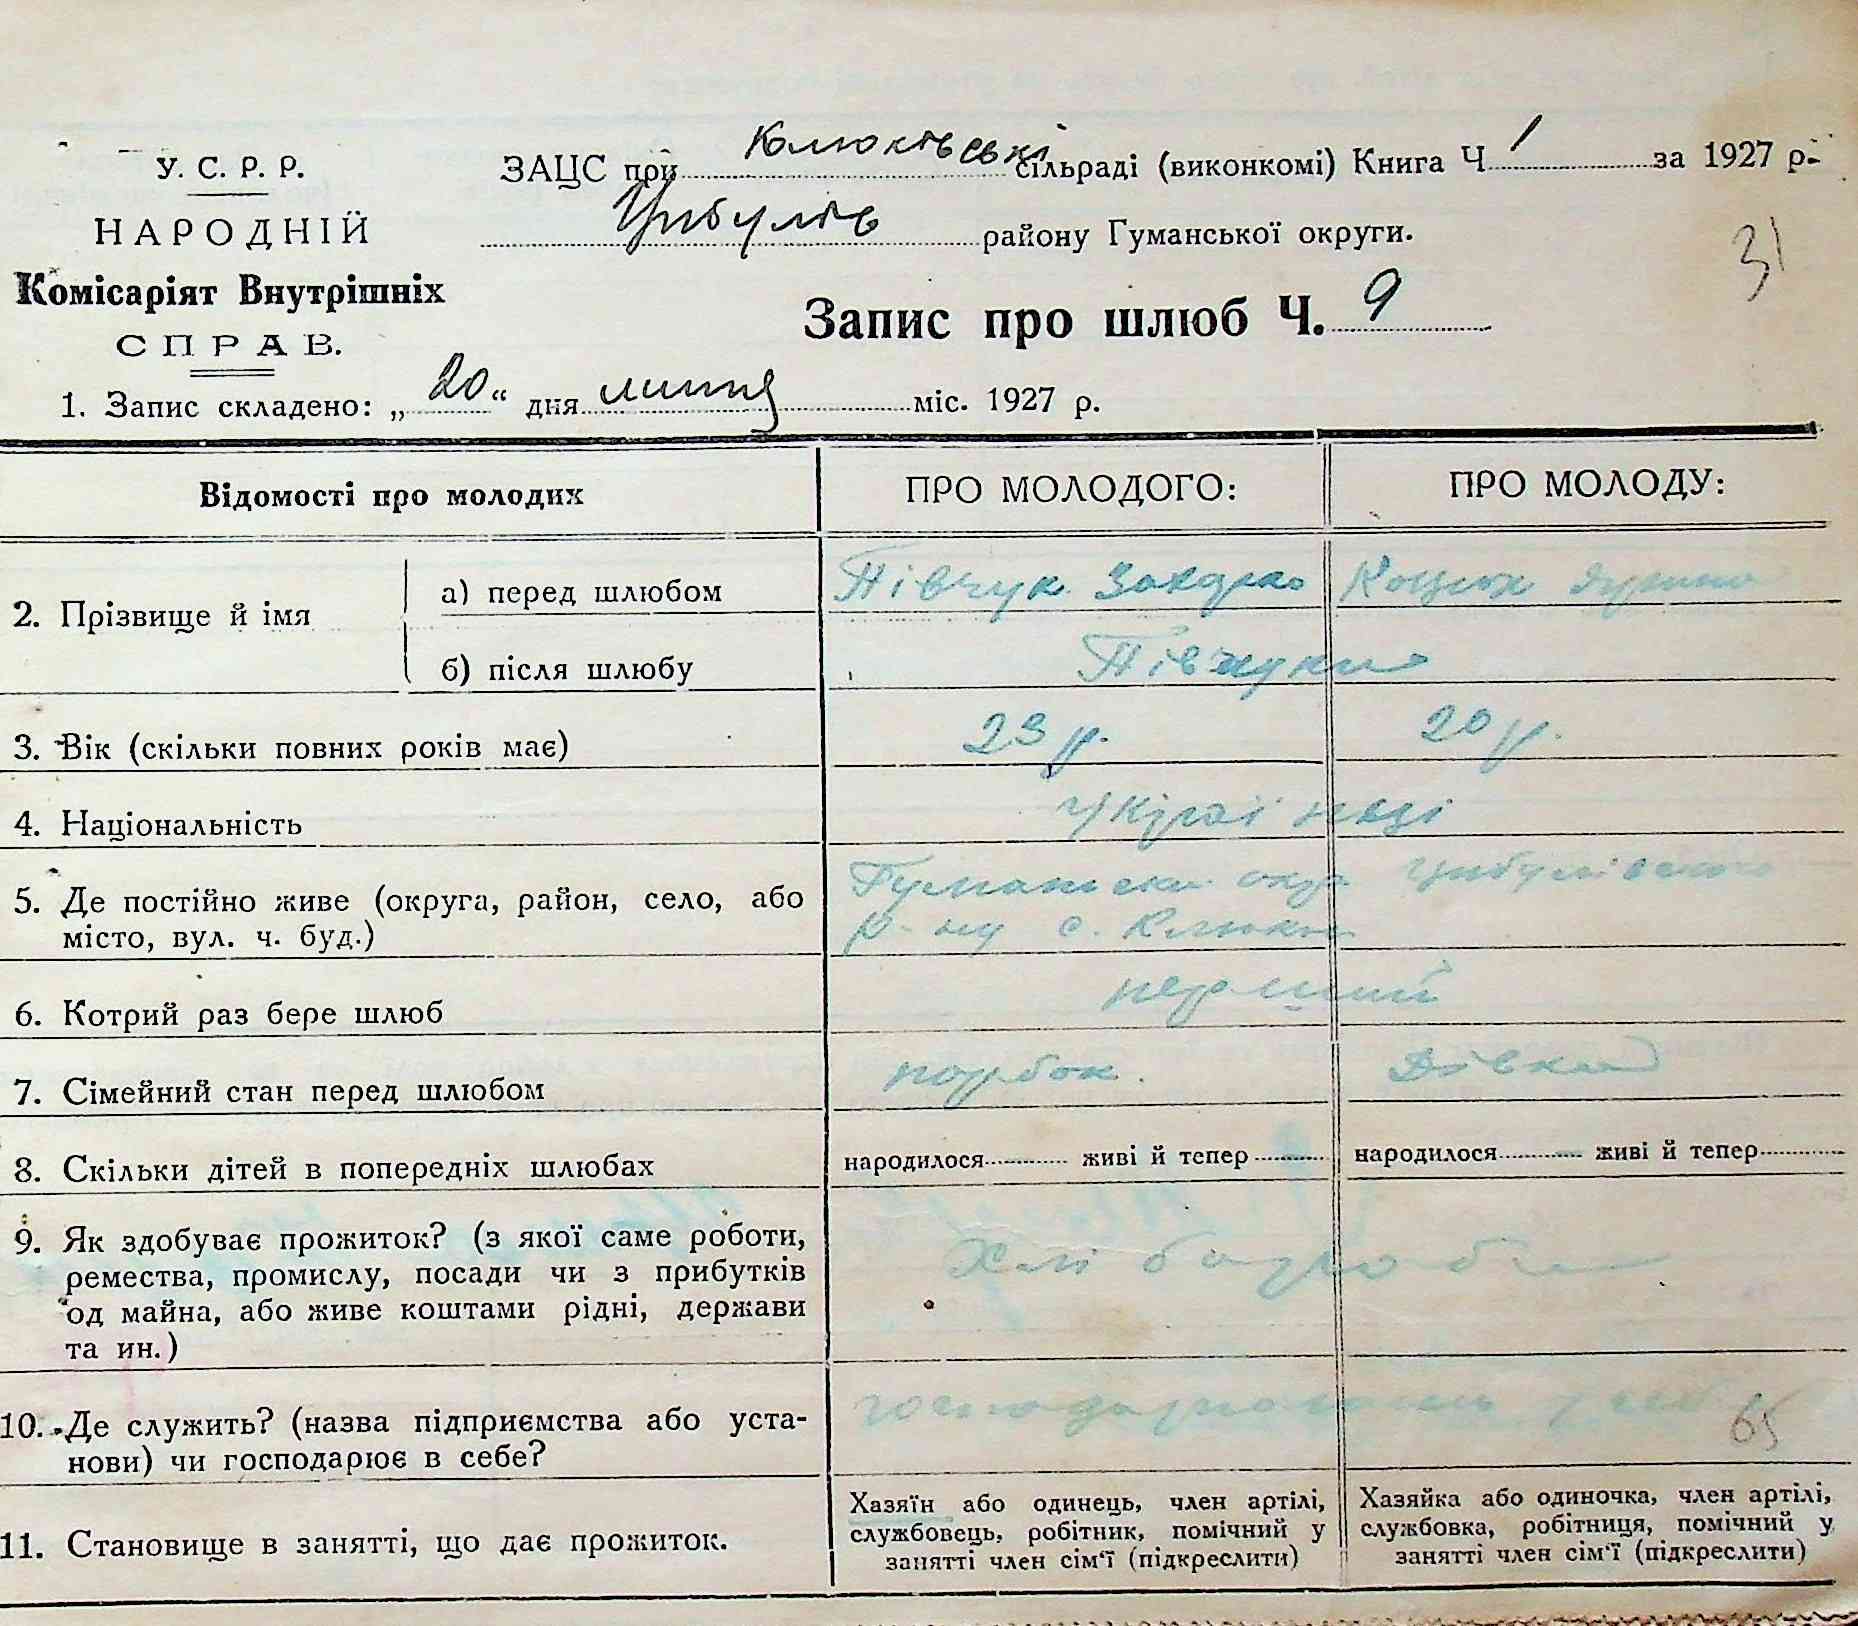 У. С. Р. Р.
НАРОДНІЙ
Комісаріят Внутрішніх
СПРАВ.
ЗАЦС при Клюківські сільраді (виконкомі) Книга Ч. 1 за 1927 р.
Цибулів району Гуманської округи.
31
Запис про шлюб Ч. 9
1. Запис складено: „20“ дня липня міс. 1927 р.
Відомості про молодих
ПРО МОЛОДОГО:
ПРО МОЛОДУ:
2. Прізвище й імя
а) перед шлюбом
Півчук Захарко
Коцюк
б) після шлюбу
Півчуки
3. Вік (скільки повних років має)
23 р.
20 р.
4. Національність
Україн­ці
5. Де постійно живе (округа, район, село, або
місто, вул. ч. буд.)
Гуманськи окр Цибулівсько
р-ну с. Клюки
6. Котрий раз бере шлюб
перший
7. Сімейний стан перед шлюбом
парбок.
Дівка
8. Скільки дітей в попередніх шлюбах
народилося живі й тепер
народилося живі й тепер
9. Як здобуває прожиток? (з якої саме роботи,
ремества, промислу, посади чи з прибутків
од майна, або живе коштами рідні, держави
та ин.)
Хліборобы
10. Де служить? (назва підприємства або уста-
нови) чи господарює в себе?
65
11. Становище в занятті, що дає прожиток.
Хазяїн або одинець, член артілі,
службовець, робітник, помічний у
занятті член сім'ї (підкреслити)
Хазяйка або одиночка, член артілі,
службовка, робітниця, помічний у
занятті член сім'ї (підкреслити)